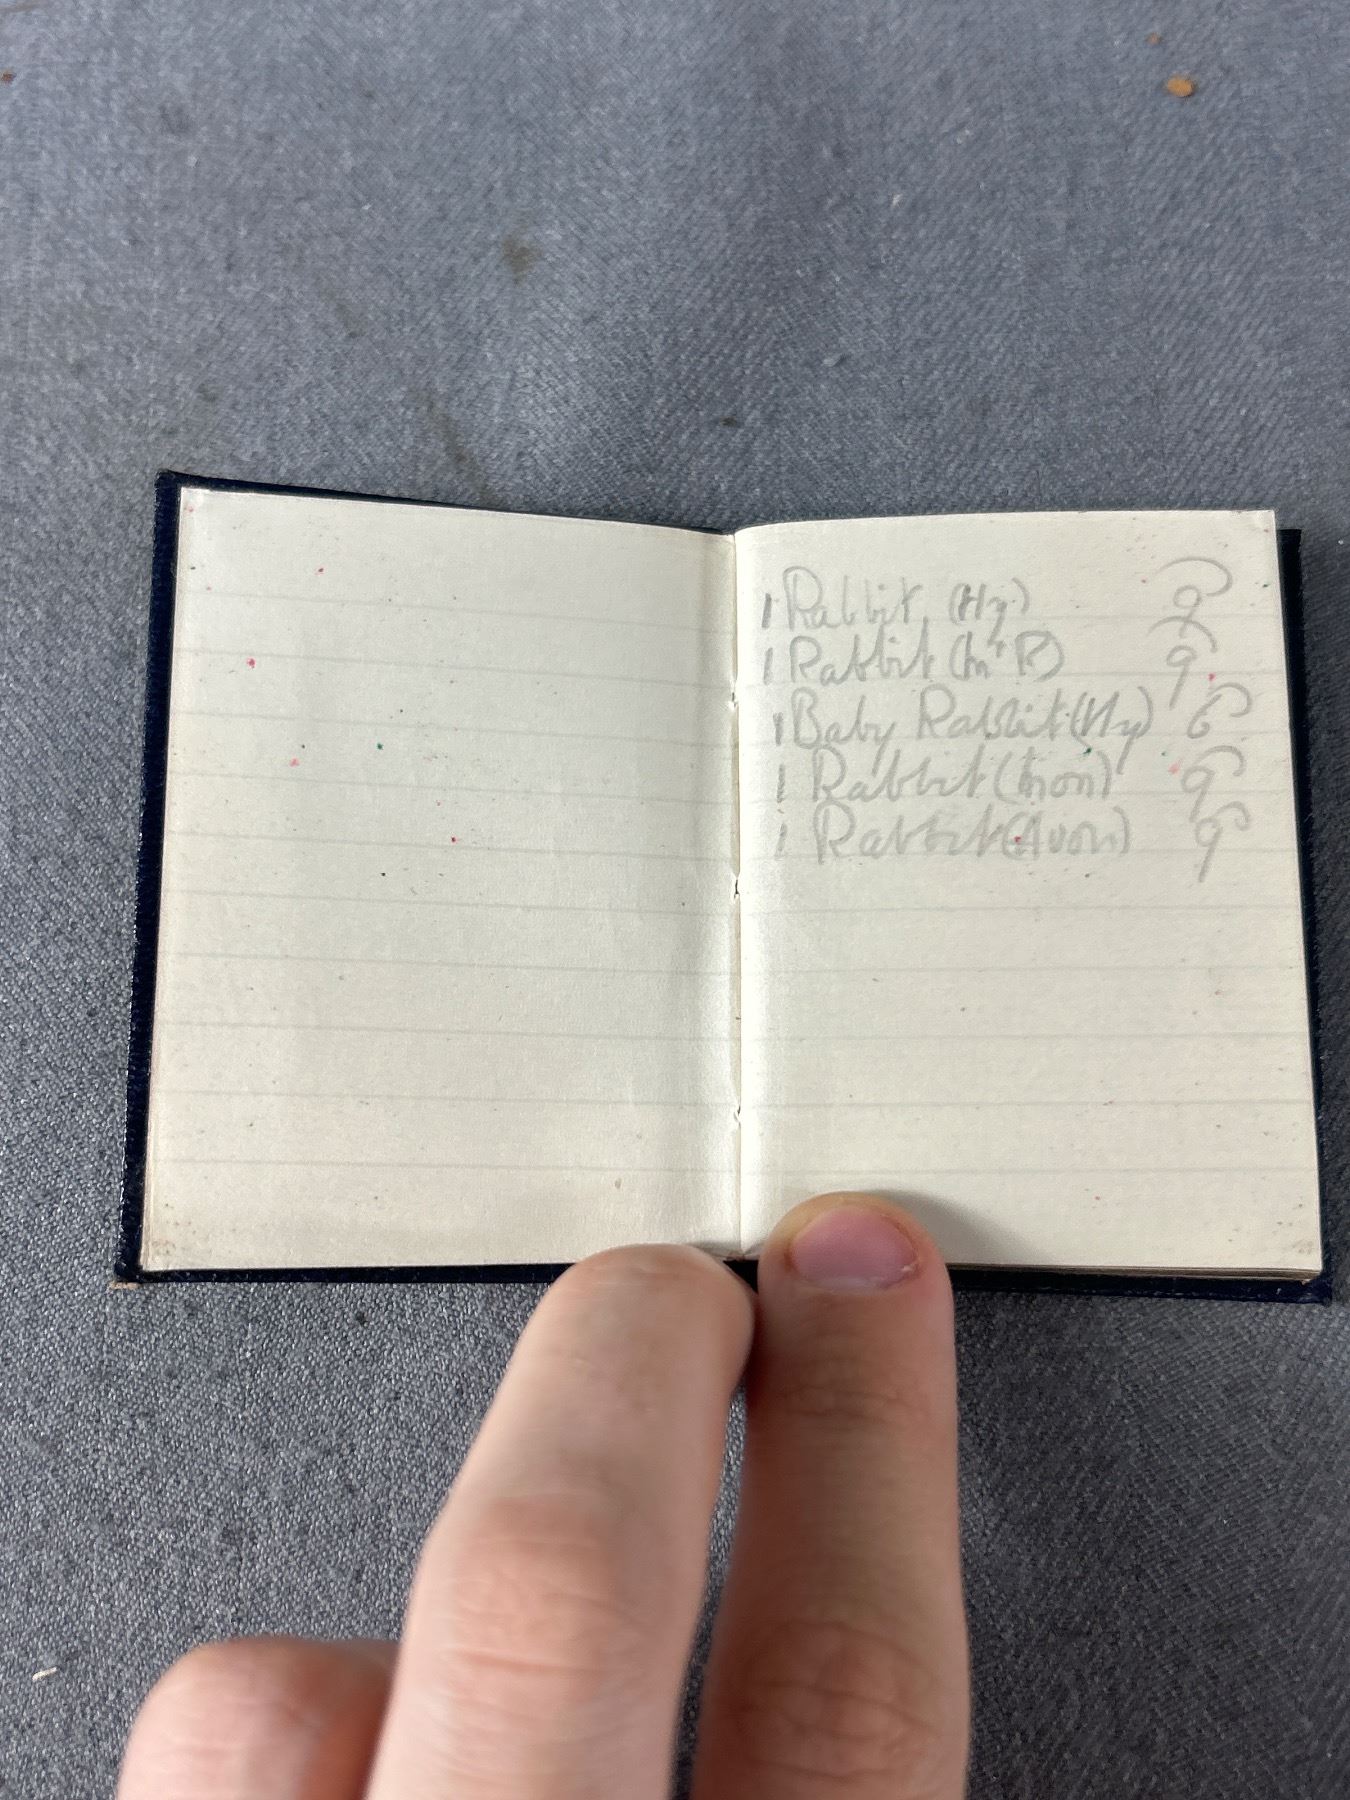 1 Rabbit (Hy) 9
1 Rabbit (Mr R) 9
1 Baby Rabbit (Hy) 6
1 Rabbit (Mon) 9
1 Rabbit (Avon) 9